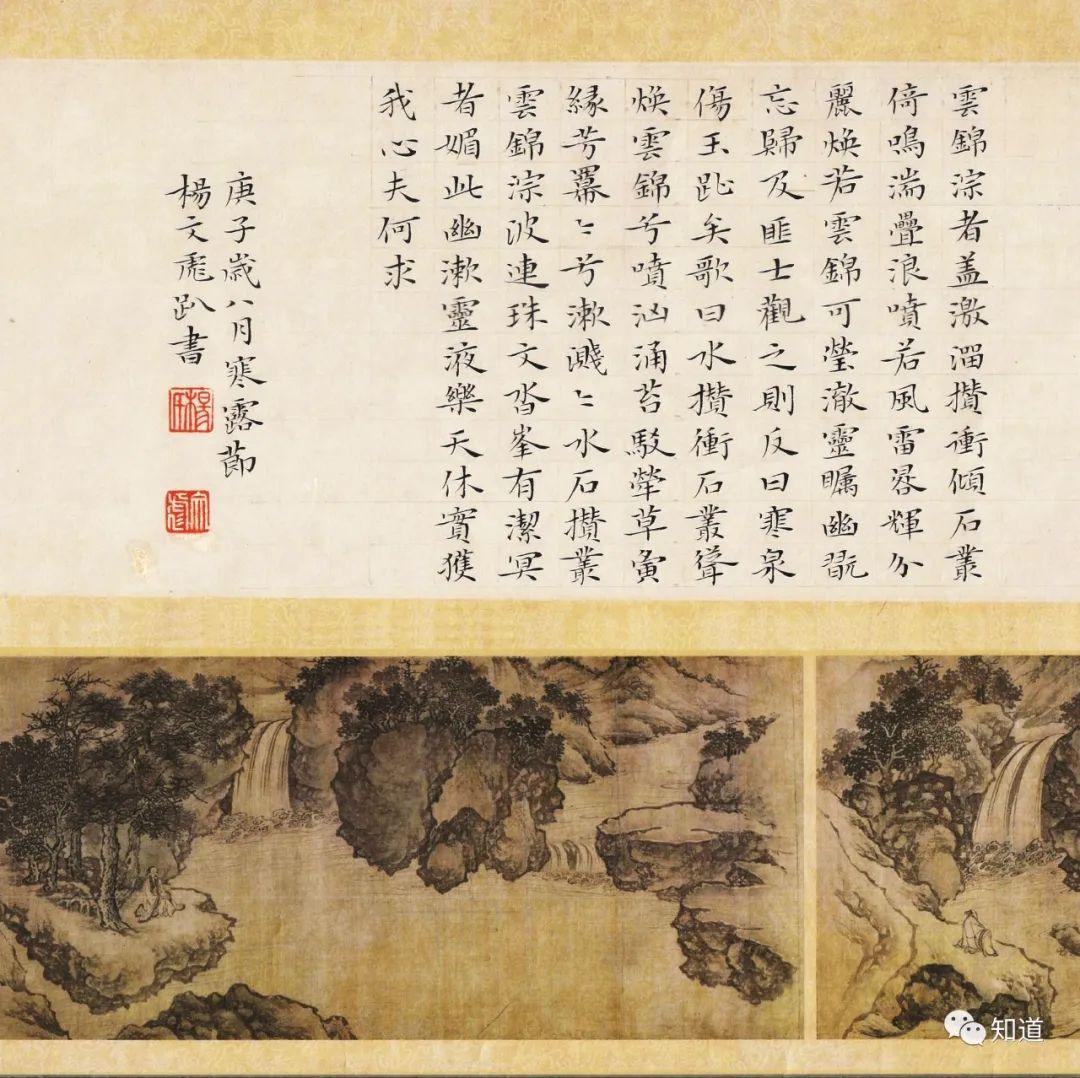 雲錦淙者盖激溜攢衝傾石叢
倚鳴湍疊浪噴若風雷晷輝分
麗煥若雲錦可瑩澈靈矚幽翫
忘歸及匪士觀之則反曰寒泉
傷玉趾矣歌曰水攢衝石叢聳
煥雲錦兮噴洶涌苔駁犖草夤
緣芳羃〻兮漱濺〻水石攢叢
雲錦淙波連珠文沓峯有潔冥
者媚此幽漱靈液樂天休實獲
我心夫何求
庚子歲八月寒露節
楊文書
知道